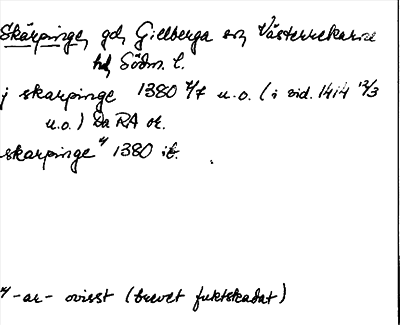 Skärpinge, gd, Gillberga sn, Västerrekarne
hd, Södm. l.
j skarpinge 1380 4/7 u.o. (i vid. 1414 12/3
u.o.) Da RA or.
skarpinge 1380 ib.
-ar- ovisst (brevet fuktskadat)